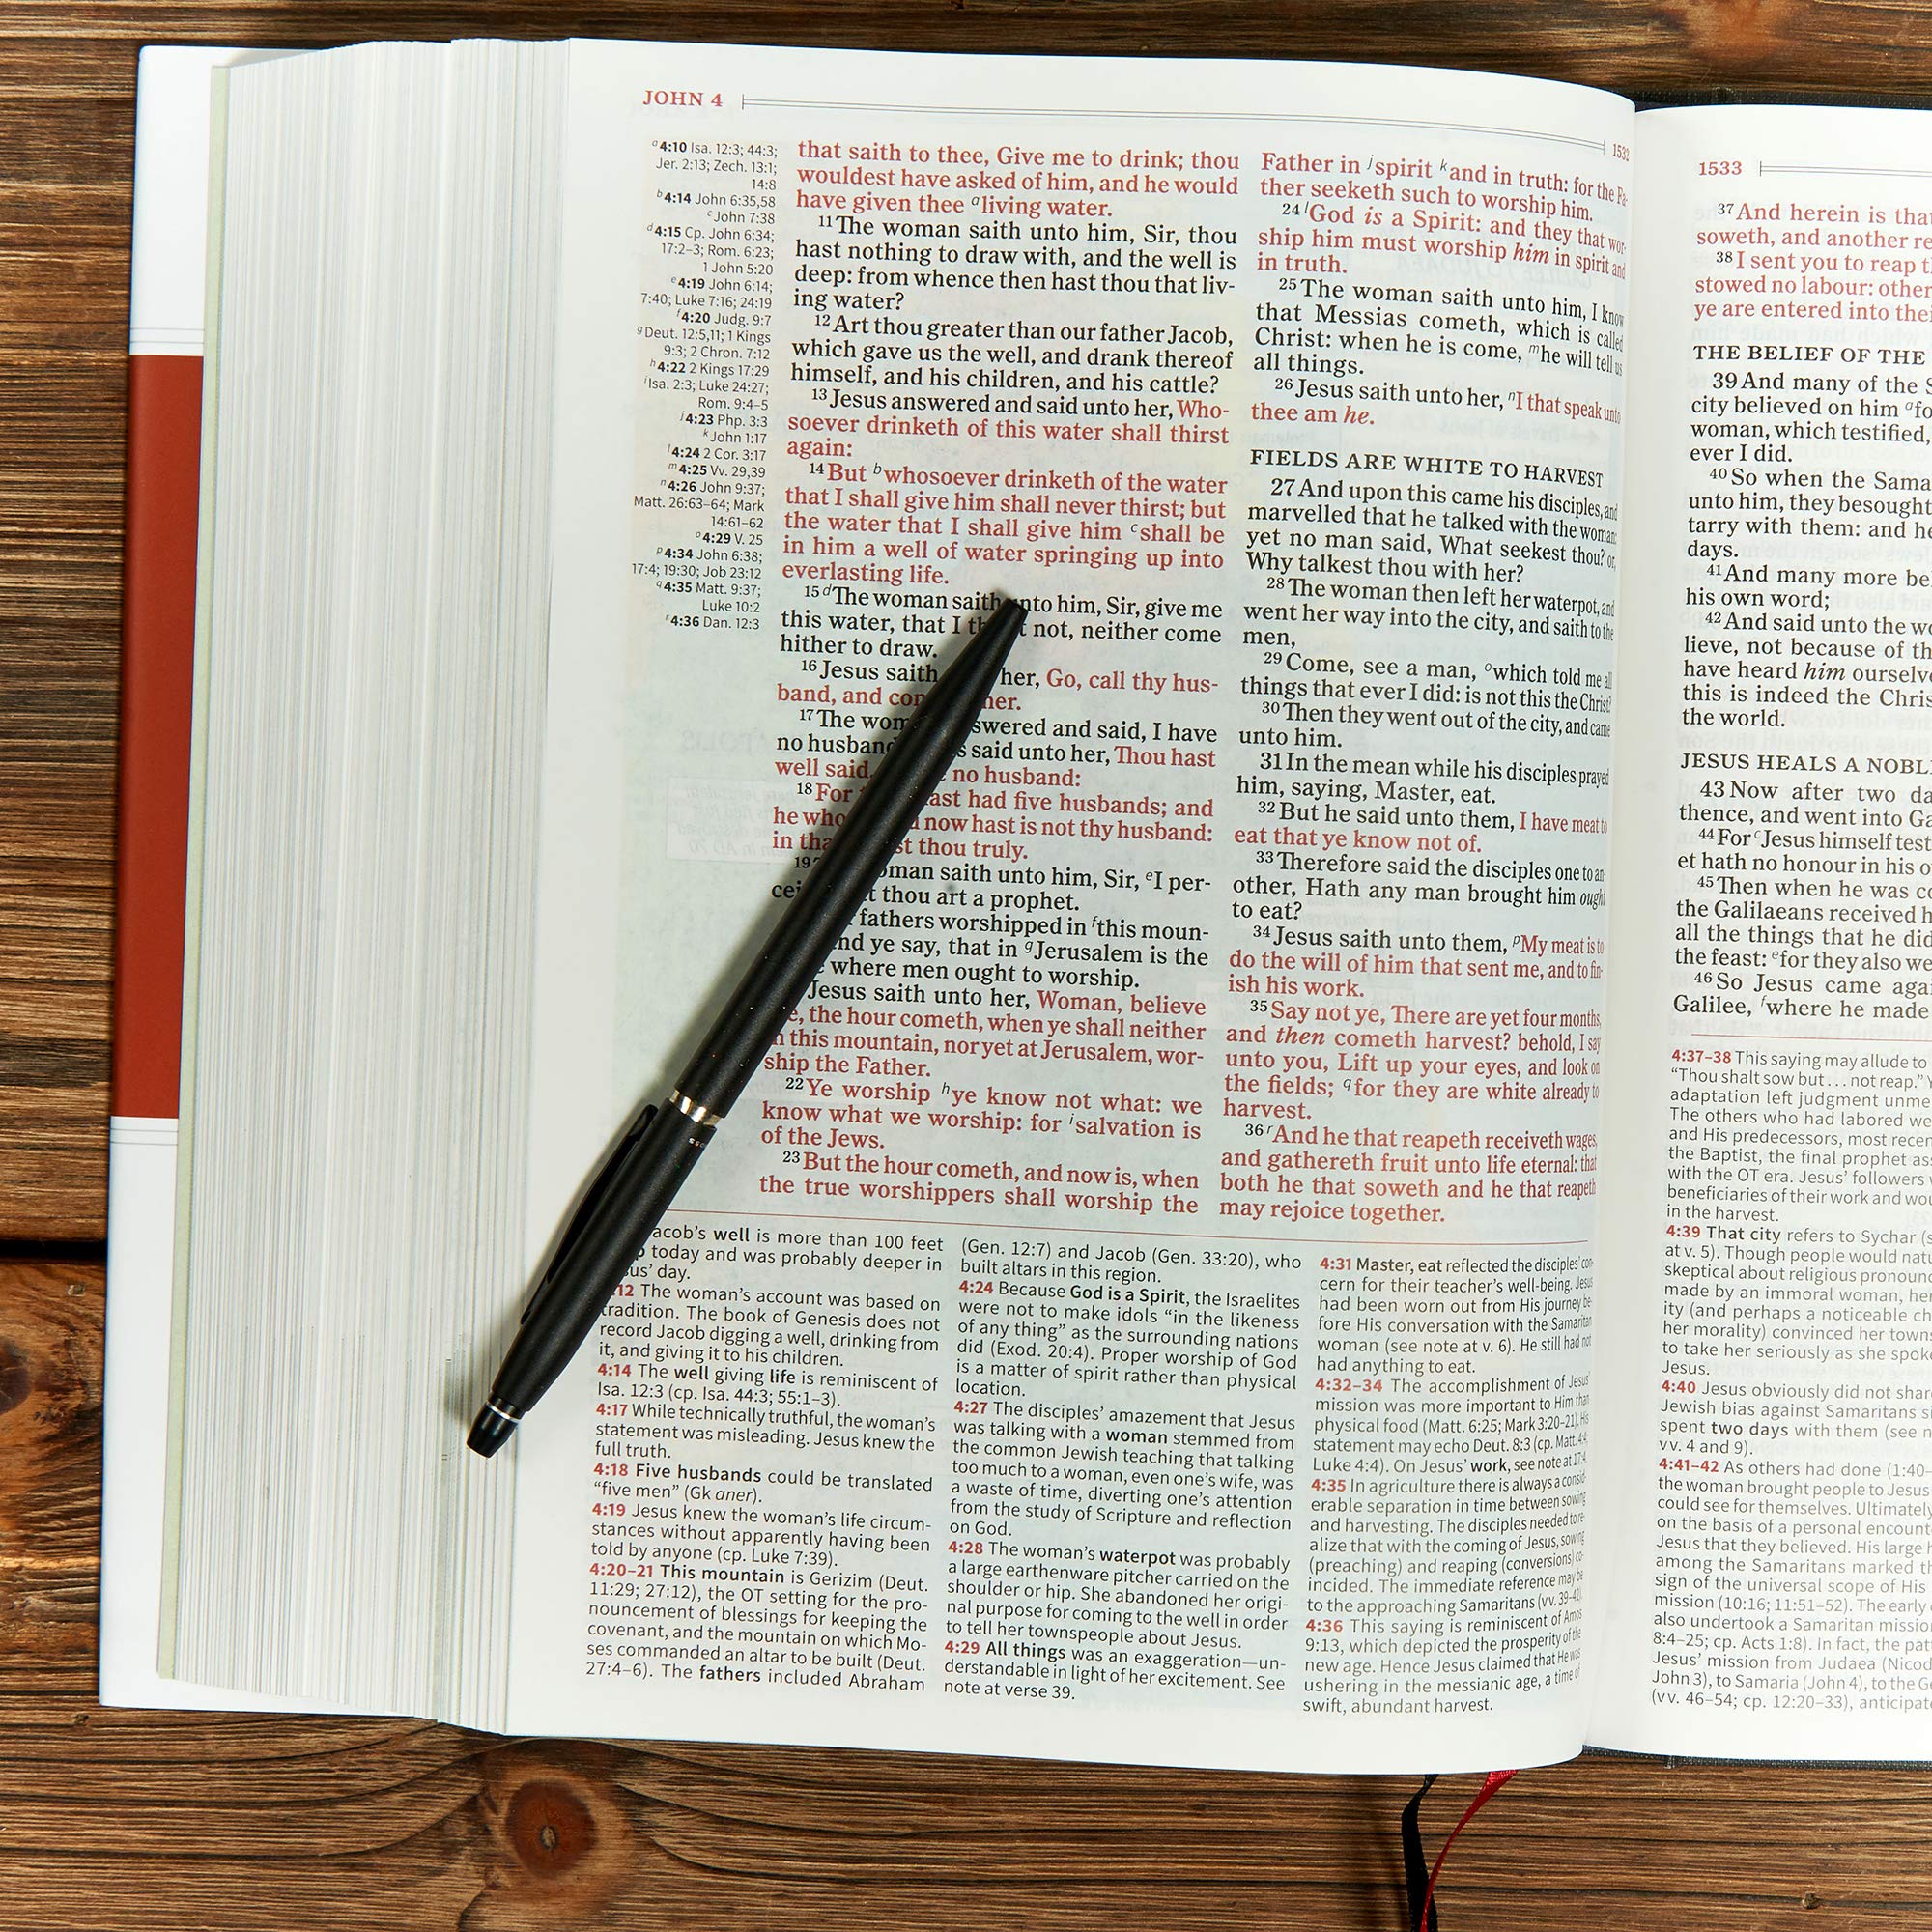 JOHN 4
1532
a4:10 Isa. 12:3; 44:3;
Jer. 2:13; Zech. 13:1;
14:8
b4:14 John 6:35,58
cJohn 7:38
d4:15 Cp. John 6:34;
17:2–3; Rom. 6:23;
1 John 5:20
e4:19 John 6:14;
7:40; Luke 7:16; 24:19
f4:20 Judg. 9:7
gDeut. 12:5,11; 1 Kings
9:3; 2 Chron. 7:12
h4:22 2 Kings 17:29
iIsa. 2:3; Luke 24:27;
Rom. 9:4–5
j4:23 Php. 3:3
kJohn 1:17
l4:24 2 Cor. 3:17
m4:25 Vv. 29,39
n4:26 John 9:37;
Matt. 26:63–64; Mark
14:61–62
o4:29 V. 25
p4:34 John 6:38;
17:4; 19:30; Job 23:12
q4:35 Matt. 9:37;
Luke 10:2
r4:36 Dan. 12:3
that saith to thee, Give me to drink; thou
wouldest have asked of him, and he would
have given thee aliving water.
11 The woman saith unto him, Sir, thou
hast nothing to draw with, and the well is
deep: from whence then hast thou that liv-
ing water?
12 Art thou greater than our father Jacob,
which gave us the well, and drank thereof
himself, and his children, and his cattle?
13 Jesus answered and said unto her, Who-
soever drinketh of this water shall thirst
again:
14 But bwhosoever drinketh of the water
that I shall give him shall never thirst; but
the water that I shall give him cshall be
in him a well of water springing up into
everlasting life.
15 dThe woman saith unto him, Sir, give me
this water, that I not, neither come
hither to draw.
16 Jesus saith her, Go, call thy hus-
band, and her.
17 The answered and said, I have
no husband. said unto her, Thou hast
well said, no husband:
18 For hast had five husbands; and
he now hast is not thy husband:
in thou truly.
19 saith unto him, Sir, eI per-
thou art a prophet.
fathers worshipped in fthis moun-
and ye say, that in gJerusalem is the
where men ought to worship.
Jesus saith unto her, Woman, believe
the hour cometh, when ye shall neither
this mountain, nor yet at Jerusalem, wor-
ship the Father.
22 Ye worship hye know not what: we
know what we worship: for isalvation is
of the Jews.
23 But the hour cometh, and now is, when
the true worshippers shall worship the
Father in jspirit kand in truth: for the Fa-
ther seeketh such to worship him.
24 lGod is a Spirit: and they that wor-
ship him must worship him in spirit and
in truth.
25 The woman saith unto him, I know
that Messias cometh, which is called
Christ: when he is come, mhe will tell us
all things.
26 Jesus saith unto her, nI that speak unto
thee am he.
FIELDS ARE WHITE TO HARVEST
27 And upon this came his disciples, and
marvelled that he talked with the woman:
yet no man said, What seekest thou? or,
Why talkest thou with her?
28 The woman then left her waterpot, and
went her way into the city, and saith to the
men,
29 Come, see a man, owhich told me all
things that ever I did: is not this the Christ?
30 Then they went out of the city, and came
unto him.
31 In the mean while his disciples prayed
him, saying, Master, eat.
32 But he said unto them, I have meat to
eat that ye know not of.
33 Therefore said the disciples one to an-
other, Hath any man brought him ought
to eat?
34 Jesus saith unto them, pMy meat is to
do the will of him that sent me, and to fin-
ish his work.
35 Say not ye, There are yet four months,
and then cometh harvest? behold, I say
unto you, Lift up your eyes, and look on
the fields; qfor they are white already to
harvest.
36 rAnd he that reapeth receiveth wages,
and gathereth fruit unto life eternal: that
both he that soweth and he that reapeth
may rejoice together.
Jacob's well is more than 100 feet
today and was probably deeper in
Jesus' day.
4:12 The woman's account was based on
tradition. The book of Genesis does not
record Jacob digging a well, drinking from
it, and giving it to his children.
4:14 The well giving life is reminiscent of
Isa. 12:3 (cp. Isa. 44:3; 55:1–3).
4:17 While technically truthful, the woman's
statement was misleading. Jesus knew the
full truth.
4:18 Five husbands could be translated
"five men" (Gk aner).
4:19 Jesus knew the woman's life circum-
stances without apparently having been
told by anyone (cp. Luke 7:39).
4:20–21 This mountain is Gerizim (Deut.
11:29; 27:12), the OT setting for the pro-
nouncement of blessings for keeping the
covenant, and the mountain on which Mo-
ses commanded an altar to be built (Deut.
27:4–6). The fathers included Abraham
(Gen. 12:7) and Jacob (Gen. 33:20), who
built altars in this region.
4:24 Because God is a Spirit, the Israelites
were not to make idols "in the likeness
of any thing" as the surrounding nations
did (Exod. 20:4). Proper worship of God
is a matter of spirit rather than physical
location.
4:27 The disciples' amazement that Jesus
was talking with a woman stemmed from
the common Jewish teaching that talking
too much to a woman, even one's wife, was
a waste of time, diverting one's attention
from the study of Scripture and reflection
on God.
4:28 The woman's waterpot was probably
a large earthenware pitcher carried on the
shoulder or hip. She abandoned her origi-
nal purpose for coming to the well in order
to tell her townspeople about Jesus.
4:29 All things was an exaggeration—un-
derstandable in light of her excitement. See
note at verse 39.
4:31 Master, eat reflected the disciples' con-
cern for their teacher's well-being. Jesus
had been worn out from His journey be-
fore His conversation with the Samaritan
woman (see note at v. 6). He still had not
had anything to eat.
4:32–34 The accomplishment of Jesus'
mission was more important to Him than
physical food (Matt. 6:25; Mark 3:20–21). His
statement may echo Deut. 8:3 (cp. Matt. 4:4;
Luke 4:4). On Jesus' work, see note at 17:4.
4:35 In agriculture there is always a consid-
erable separation in time between sowing
and harvesting. The disciples needed to re-
alize that with the coming of Jesus, sowing
(preaching) and reaping (conversions) co-
incided. The immediate reference may be
to the approaching Samaritans (vv. 39–42).
4:36 This saying is reminiscent of Amos
9:13, which depicted the prosperity of the
new age. Hence Jesus claimed that He was
ushering in the messianic age, a time of
swift, abundant harvest.
1533
37 And herein is that
soweth, and another
38 I sent you to reap
stowed no labour: other
ye are entered into
THE BELIEF OF THE
39 And many of the
city believed on him a
woman, which testified,
ever I did.
40 So when the
unto him, they besought
tarry with them: and he
days.
41 And many more
his own word;
42 And said unto the
lieve, not because of
have heard him
this is indeed the
the world.
JESUS HEALS A
43 Now after two
thence, and went into
44 For cJesus himself
et hath no honour in his
45 Then when he was
the Galilaeans received
all the things that he did
the feast: efor they also
46 So Jesus came
Galilee, fwhere he made
4:37–38 This saying may allude to
"Thou shalt sow but . . . not reap."
adaptation left judgment
The others who had labored
and His predecessors, most
the Baptist, the final prophet
with the OT era. Jesus' followers
beneficiaries of their work and
in the harvest.
4:39 That city refers to Sychar
at v. 5). Though people would
skeptical about religious
made by an immoral woman, her
ity (and perhaps a noticeable
her morality) convinced her
to take her seriously as she
Jesus.
4:40 Jesus obviously did not
Jewish bias against Samaritans
spent two days with them (see
vv. 4 and 9).
4:41–42 As others had done
the woman brought people to Jesus
could see for themselves. Ultimately
on the basis of a personal
Jesus that they believed. His large
among the Samaritans marked
sign of the universal scope of His
mission (10:16; 11:51–52). The early
also undertook a Samaritan
8:4–25; cp. Acts 1:8). In fact, the
Jesus' mission from Judaea
John 3), to Samaria (John 4), to the
(vv. 46–54; cp. 12:20–33),